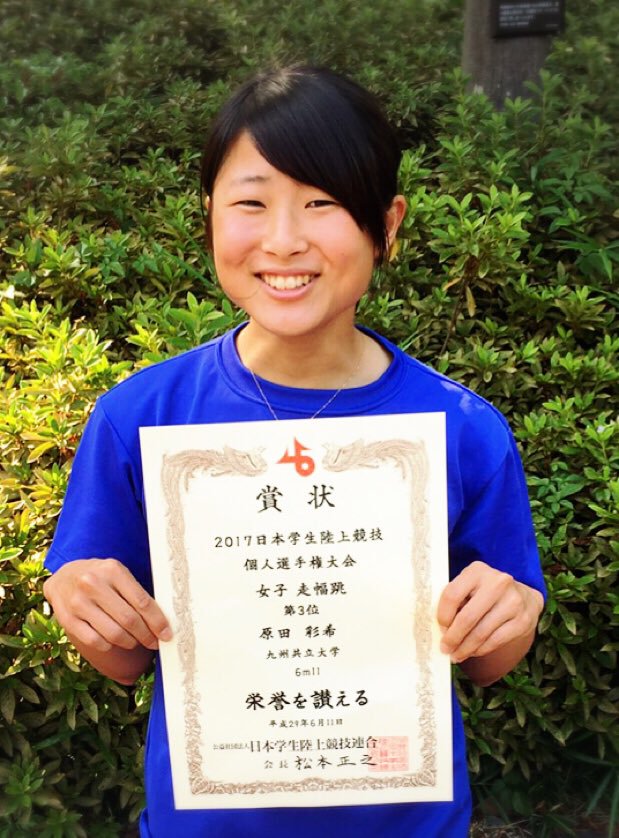 賞状
2017日本学生陸上競技
個人選手権大会
女子 走幅跳
第3位
原田 彩希
九州共立大学
6m11
栄誉を讃える
平成29年6月11日
公益社団法人日本学生陸上競技連合
会長 松本正之